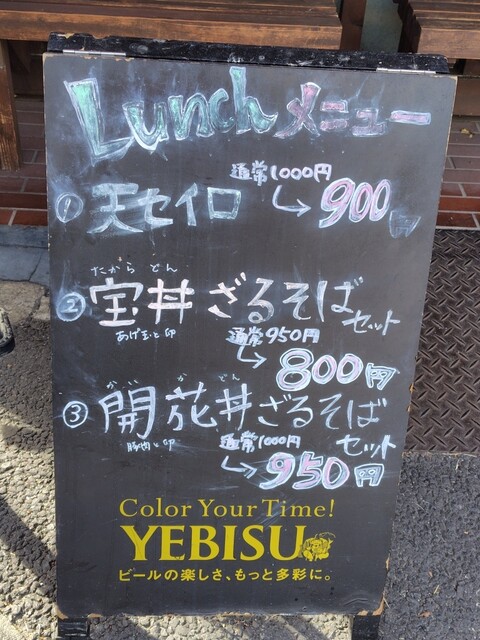 Lunch メニュー
通常1000円
① 天セイロ →900円
たからどん
② 宝丼ざるそばセット
あげ玉と卵
通常950円
→800円
かいかどん
③ 開花丼ざるそばセット
豚肉と卵
通常1000円
→950円
Color Your Time!
YEBISU
ビールの楽しさ、もっと多彩に。